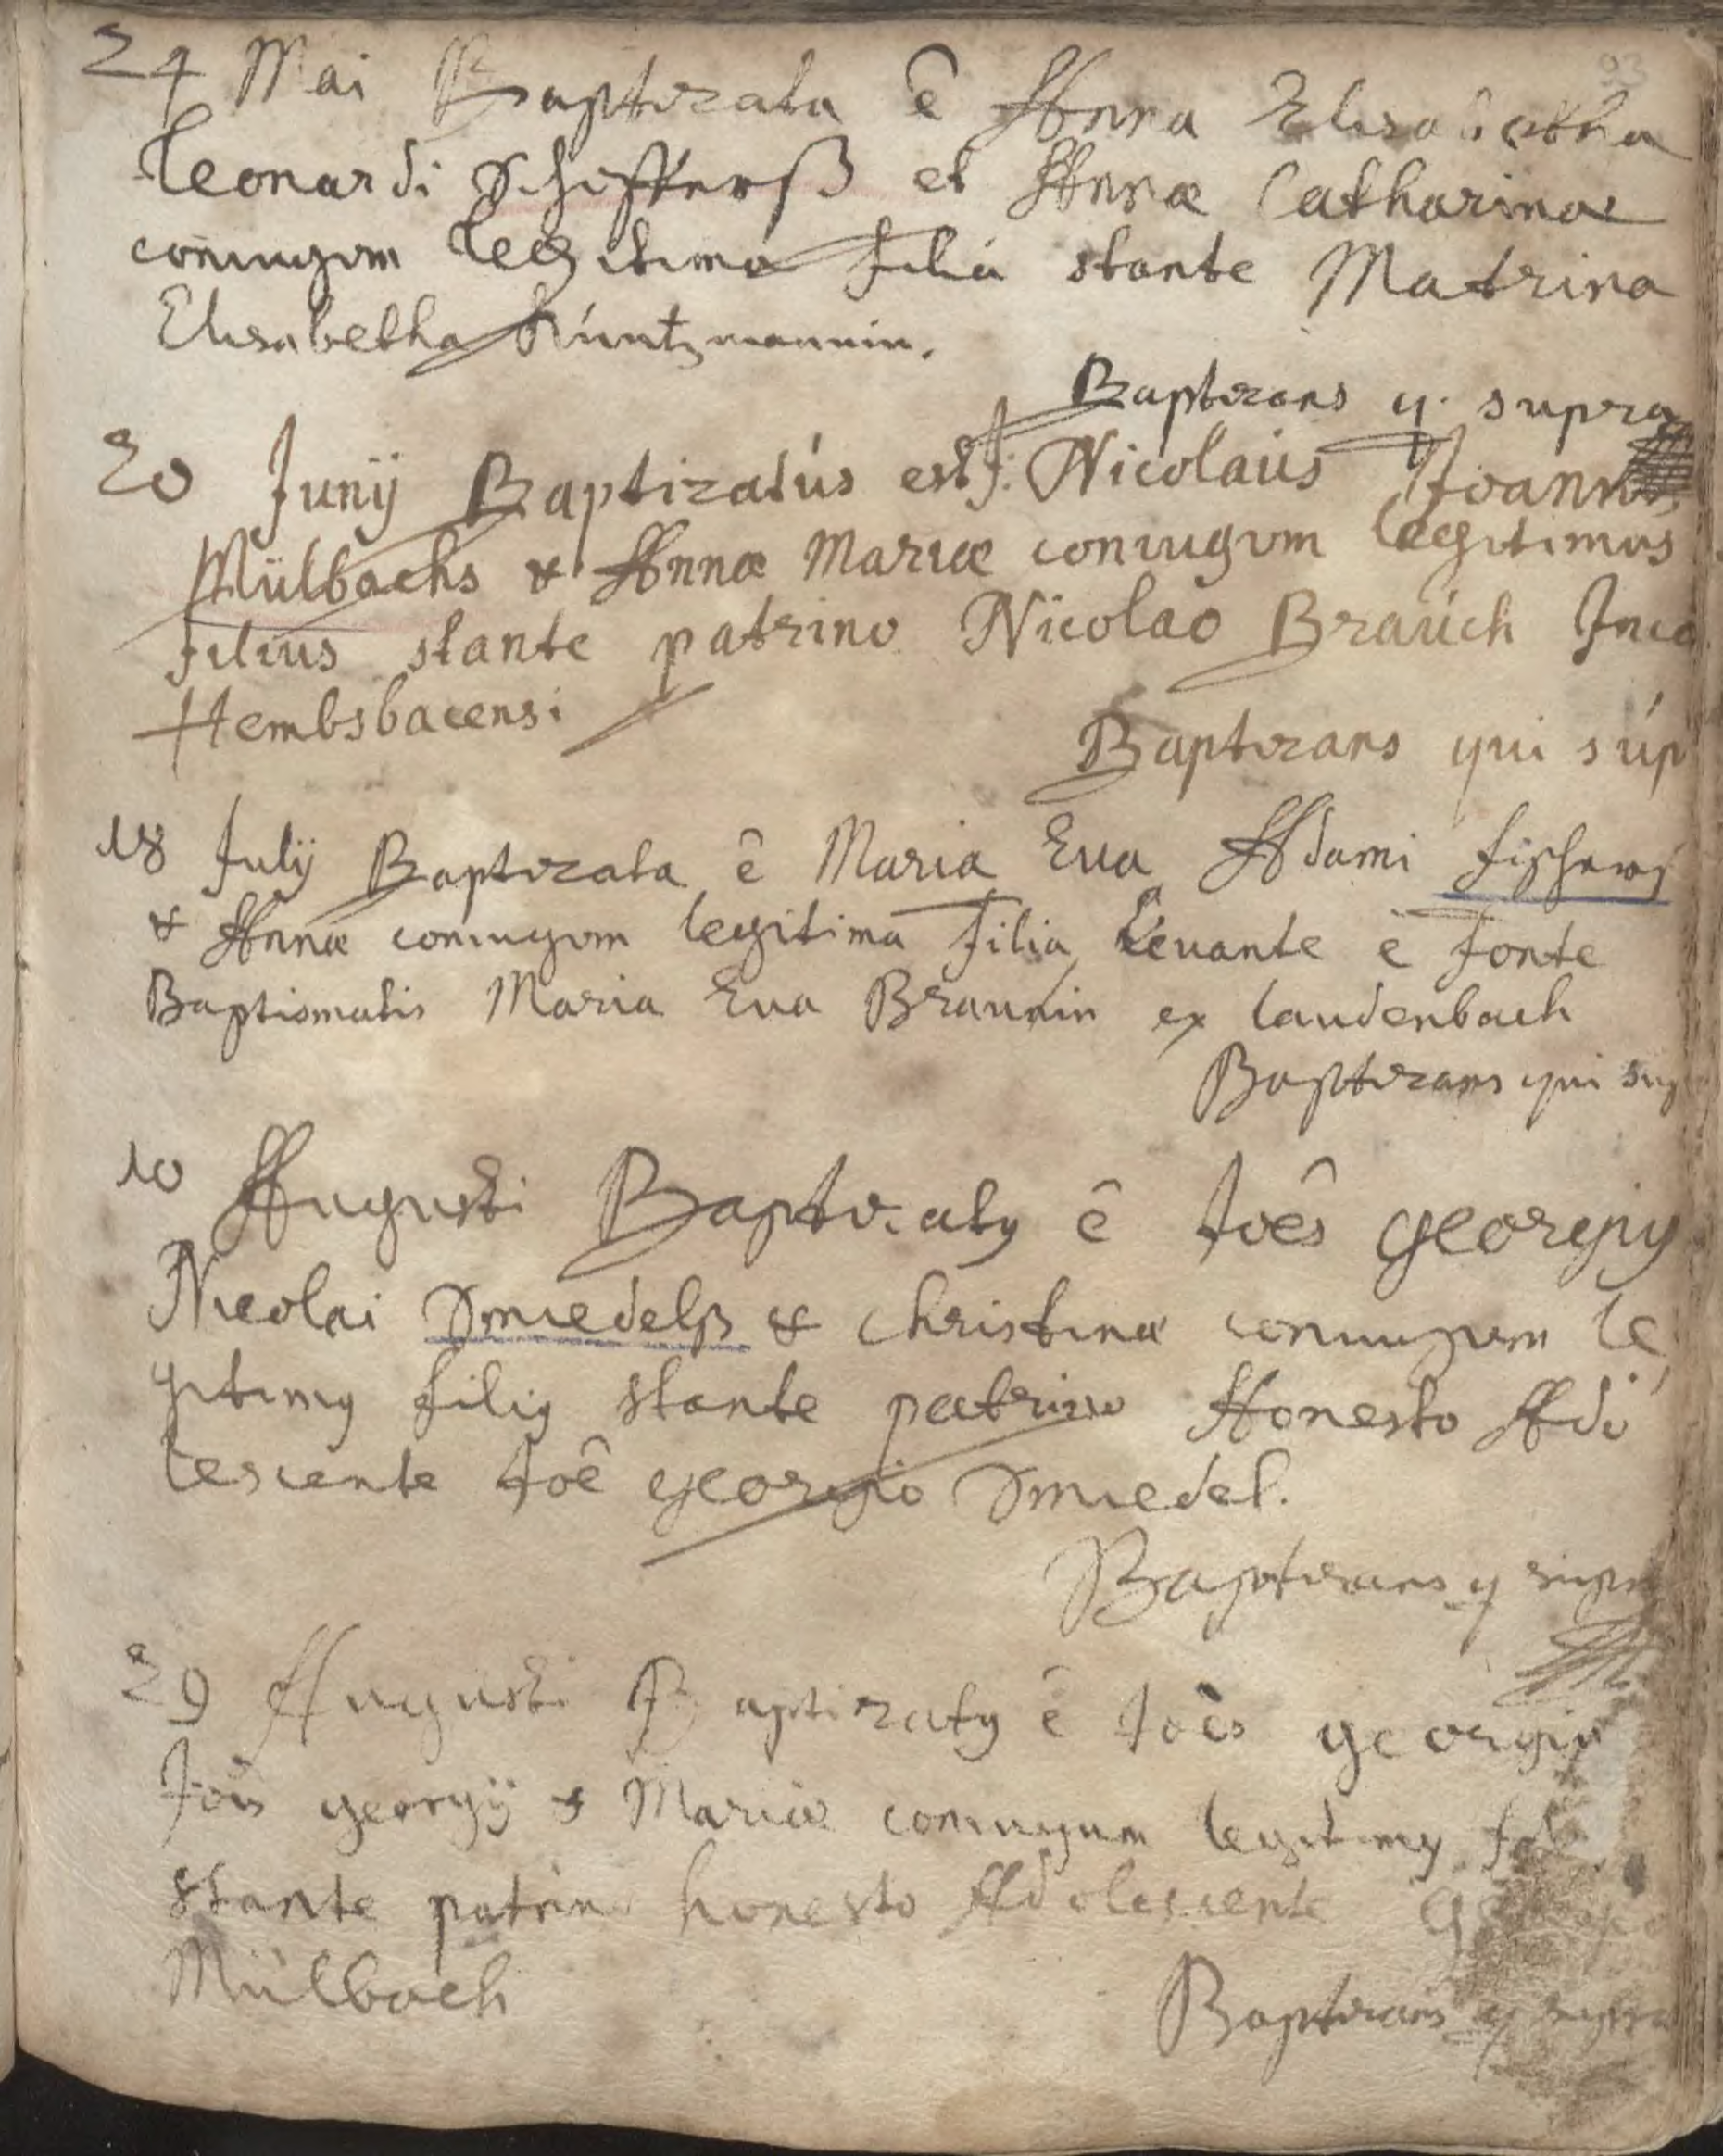 93
24 Mai Baptizata ê Anna Elisabetha
Leonardi Schifferß et Annæ Catharinæ
coniugum legitima filia stante Matrina
Elisabetha Kúntzmannin.
Baptizans q. supra
20 Junÿ Baptizatús est J: Nicolaús Joannis
Mülbachs & Annæ Mariæ coniugum legitimus
filius stante patrino Nicolao Braúch Inco
Hembsbacensi
Baptizans qui súp
18 Julÿ Baptizata ê Maria Eva Adami Fischers
& Annæ coniugum legitima filia Levante è fonte
Baptismatis Maria Eva Braunin ex Laudenbach
Baptizans qui sup
10 Augusti Baptizatq ê Joês Georgiq
Nicolai Smiedelß & Christinæ coniugum le
gitimq filiq stante patrino Honesto Ado
lescente Joê Georgio Smiedel.
Baptizans q supra
29 Augusti Baptizatq ê Joês Georgiq
Jois Georgÿ & Mariæ coniugum legitimq fil
stante patrino honesto Adolescente
Mülbach
Baptizans q supra